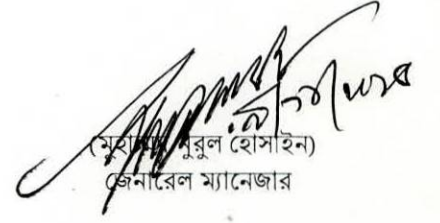 (মুহাম্মদ নুরুল হোসাইন)
জেনারেল ম্যানেজার